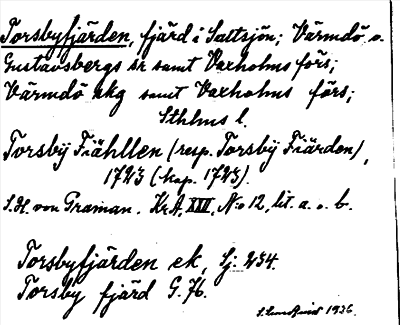 Torsbyfjärden, fjärd i Saltsjön; Värmdö o.
Gustavsbergs sn samt Vaxholms förs;
Värmdö skg samt Vaxholms förs;
Sthlms l.
Torsbÿ Fiähllen (resp. Torsbÿ Fiärden),
1723 (kop. 1723).
S.H. von Graman. Kr.A, XVI, No 12, lit. a. o. b.
Torsbyfjärden ek, Sj: 234.
Torsby fjärd G. 76.
1926.